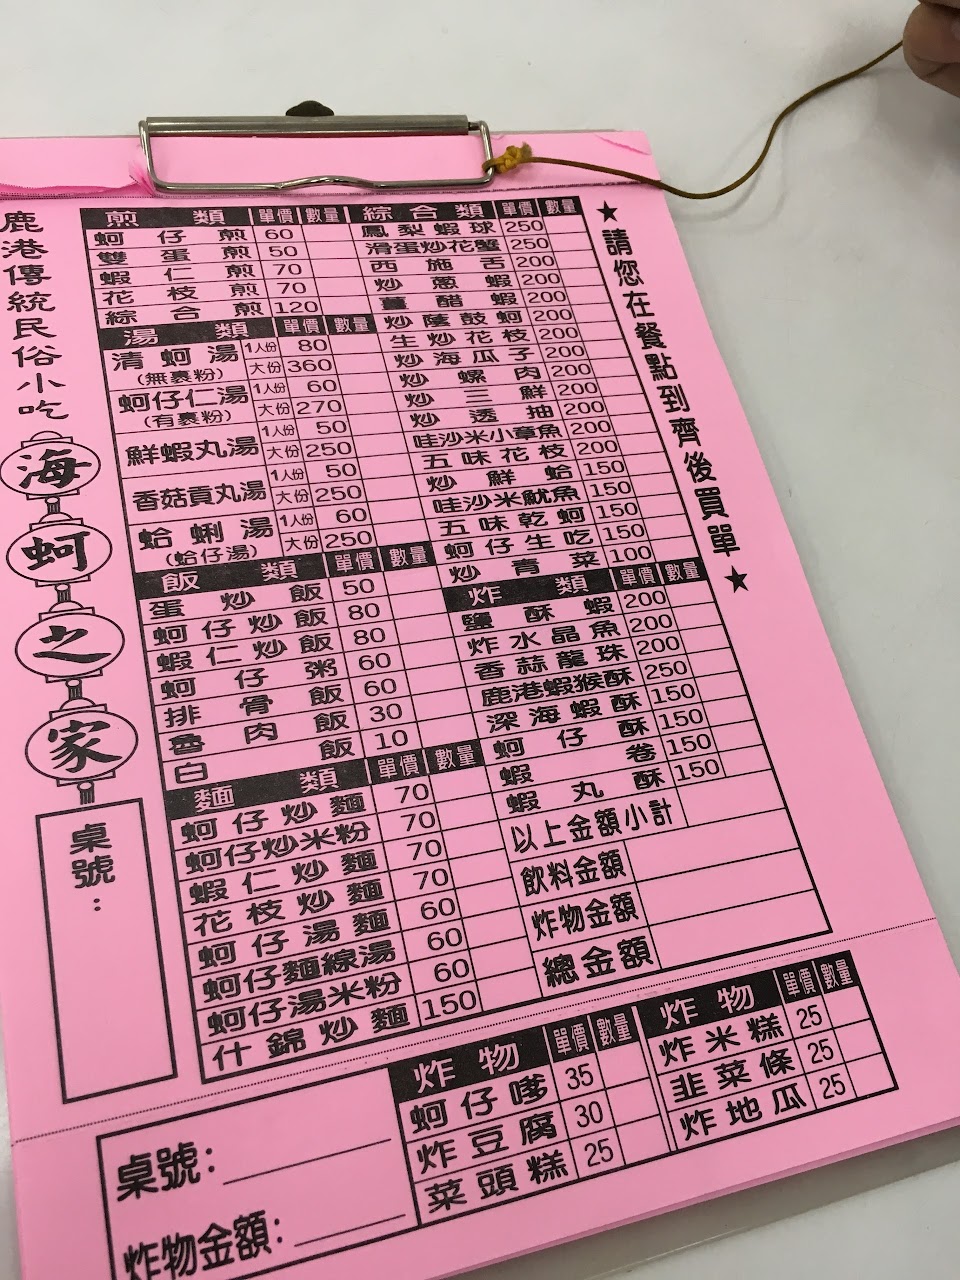 鹿港傳統民俗小吃
海蚵之家
桌號:
煎類 單價 數量
蚵仔煎 60
雙蛋煎 50
蝦仁煎 70
花枝煎 70
綜合煎 120
湯類 單價 數量
清蚵湯 1人份 80
(無裹粉) 大份 360
蚵仔仁湯 1人份 60
(有裹粉) 大份 270
鮮蝦丸湯 1人份 50
大份 250
香菇貢丸湯 1人份 50
大份 250
蛤蜊湯 1人份 60
(蛤仔湯) 大份 250
飯類 單價 數量
蛋炒飯 50
蚵仔炒飯 80
蝦仁炒飯 80
蚵仔粥 60
排骨飯 60
魯肉飯 30
白飯 10
麵類 單價 數量
蚵仔炒麵 70
蚵仔炒米粉 70
蝦仁炒麵 70
花枝炒麵 70
蚵仔湯麵 60
蚵仔麵線湯 60
蚵仔湯米粉 60
什錦炒麵 150
綜合類 單價 數量
鳳梨蝦球 250
滑蛋炒花蟹 250
西施舌 200
炒蔥蝦 200
薑醋蝦 200
炒蔭鼓蚵 200
生炒花枝 200
炒海瓜子 200
炒螺肉 200
炒三鮮 200
炒透抽 200
哇沙米小章魚 200
五味花枝 200
炒鮮蛤 150
哇沙米魷魚 150
五味乾蚵 150
蚵仔生吃 150
炒青菜 100
炸類 單價 數量
鹽酥蝦 200
炸水晶魚 200
香蒜龍珠 200
鹿港蝦猴酥 250
深海蝦酥 150
蚵仔酥 150
蝦卷 150
蝦丸酥 150
以上金額小計
飲料金額
炸物金額
總金額
★請您在餐點到齊後買單★
桌號:
炸物金額:
炸物 單價 數量
蚵仔嗲 35
炸豆腐 30
菜頭糕 25
炸物 單價 數量
炸米糕 25
韭菜條 25
炸地瓜 25